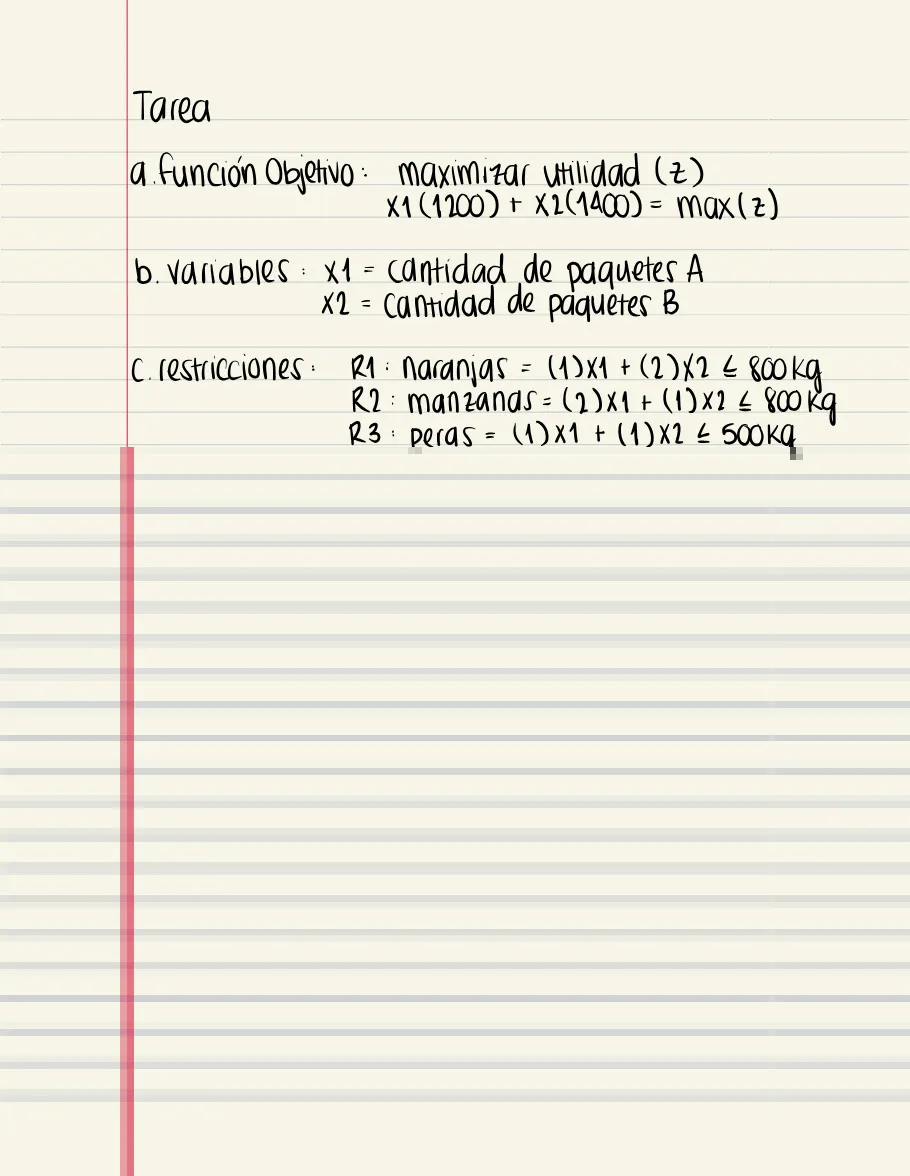 Tarea
a. función Objetivo: maximizar utilidad (z)
x1(1200) + x2(1400) = max(z)
b. variables: x1 = cantidad de paquetes A
x2 = cantidad de paquetes B
c. restricciones: R1: naranjas = (1)x1 + (2)x2 ≤ 800kg
R2: manzanas = (2)x1 + (1)x2 ≤ 800kg
R3: peras = (1)x1 + (1)x2 ≤ 500kg